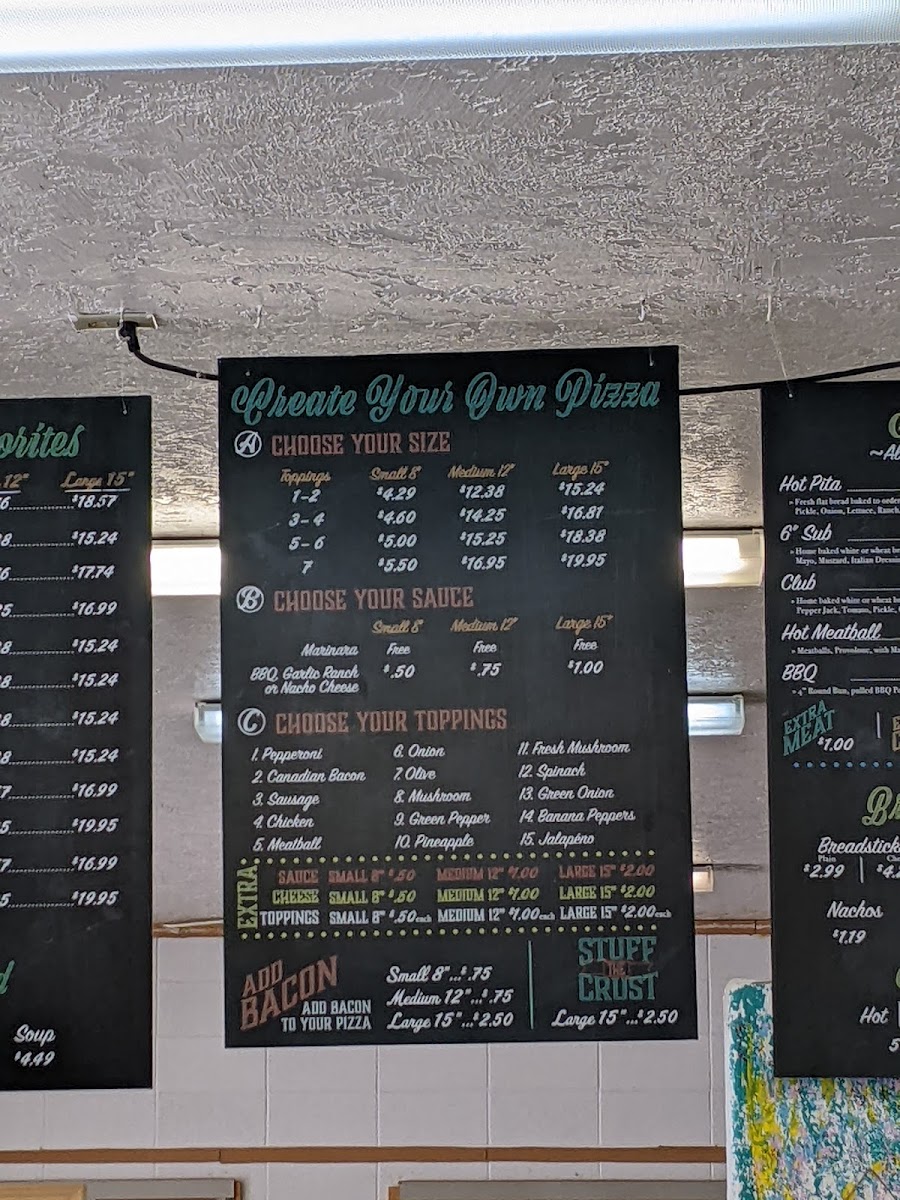 orites
12" Large 15"
6 $18.57
8 $15.24
6 $17.74
5 $16.99
8 $15.24
8 $15.24
8 $15.24
8 $15.24
7 $16.99
5 $19.95
7 $16.99
5 $19.95
d
Soup
$4.49
Create Your Own Pizza
A CHOOSE YOUR SIZE
Toppings Small 8" Medium 12" Large 15"
1-2 $4.29 $12.38 $15.24
3-4 $4.60 $14.25 $16.81
5-6 $5.00 $15.25 $18.38
7 $5.50 $16.95 $19.95
B CHOOSE YOUR SAUCE
Small 8" Medium 12" Large 15"
Marinara Free Free Free
BBQ, Garlic Ranch
or Nacho Cheese $.50 $.75 $1.00
C CHOOSE YOUR TOPPINGS
1. Pepperoni 6. Onion 11. Fresh Mushroom
2. Canadian Bacon 7. Olive 12. Spinach
3. Sausage 8. Mushroom 13. Green Onion
4. Chicken 9. Green Pepper 14. Banana Peppers
5. Meatball 10. Pineapple 15. Jalapéno
EXTRA
SAUCE SMALL 8" $.50 MEDIUM 12" $1.00 LARGE 15" $2.00
CHEESE SMALL 8" $.50 MEDIUM 12" $1.00 LARGE 15" $2.00
TOPPINGS SMALL 8" $.50 each MEDIUM 12" $1.00 each LARGE 15" $2.00 each
ADD
BACON
ADD BACON
TO YOUR PIZZA
Small 8"...$.75
Medium 12"...$.75
Large 15"...$2.50
STUFF
THE
CRUST
Large 15"...$2.50
~Al
Hot Pita
» Fresh flat bread baked to order
Pickle, Onion, Lettuce, Ranch,
6" Sub
» Home baked white or wheat
Mayo, Mustard, Italian
Club
» Home baked white or wheat
Pepper Jack, Tomato, Pickle,
Hot Meatball
» Meatballs, Provolone, with
BBQ
» 4" Round Bun, pulled BBQ
EXTRA
MEAT $1.00
Br
Breadstick
Plain
$2.99
Nachos
$1.19
Hot
5